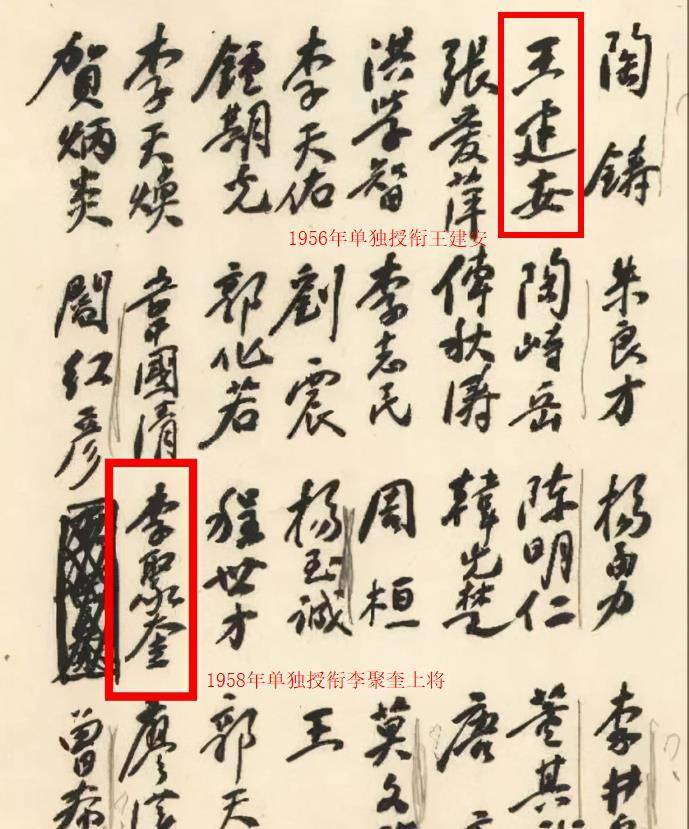 陶鑄
王建安
張爱萍
洪学智
李天佑
鍾期光
李天焕
賀炳炎
1956年单独授衔王建安
朱良才
陶峙岳
傅秋涛
李志民
劉震
郭化若
韋國清
閻红彦
楊勇
陈明仁
韓先楚
周桓
楊至诚
程世才
李聚奎
1958年单独授衔李聚奎上将
李井
董其
唐
莫文
王
郭天
廖
曾希